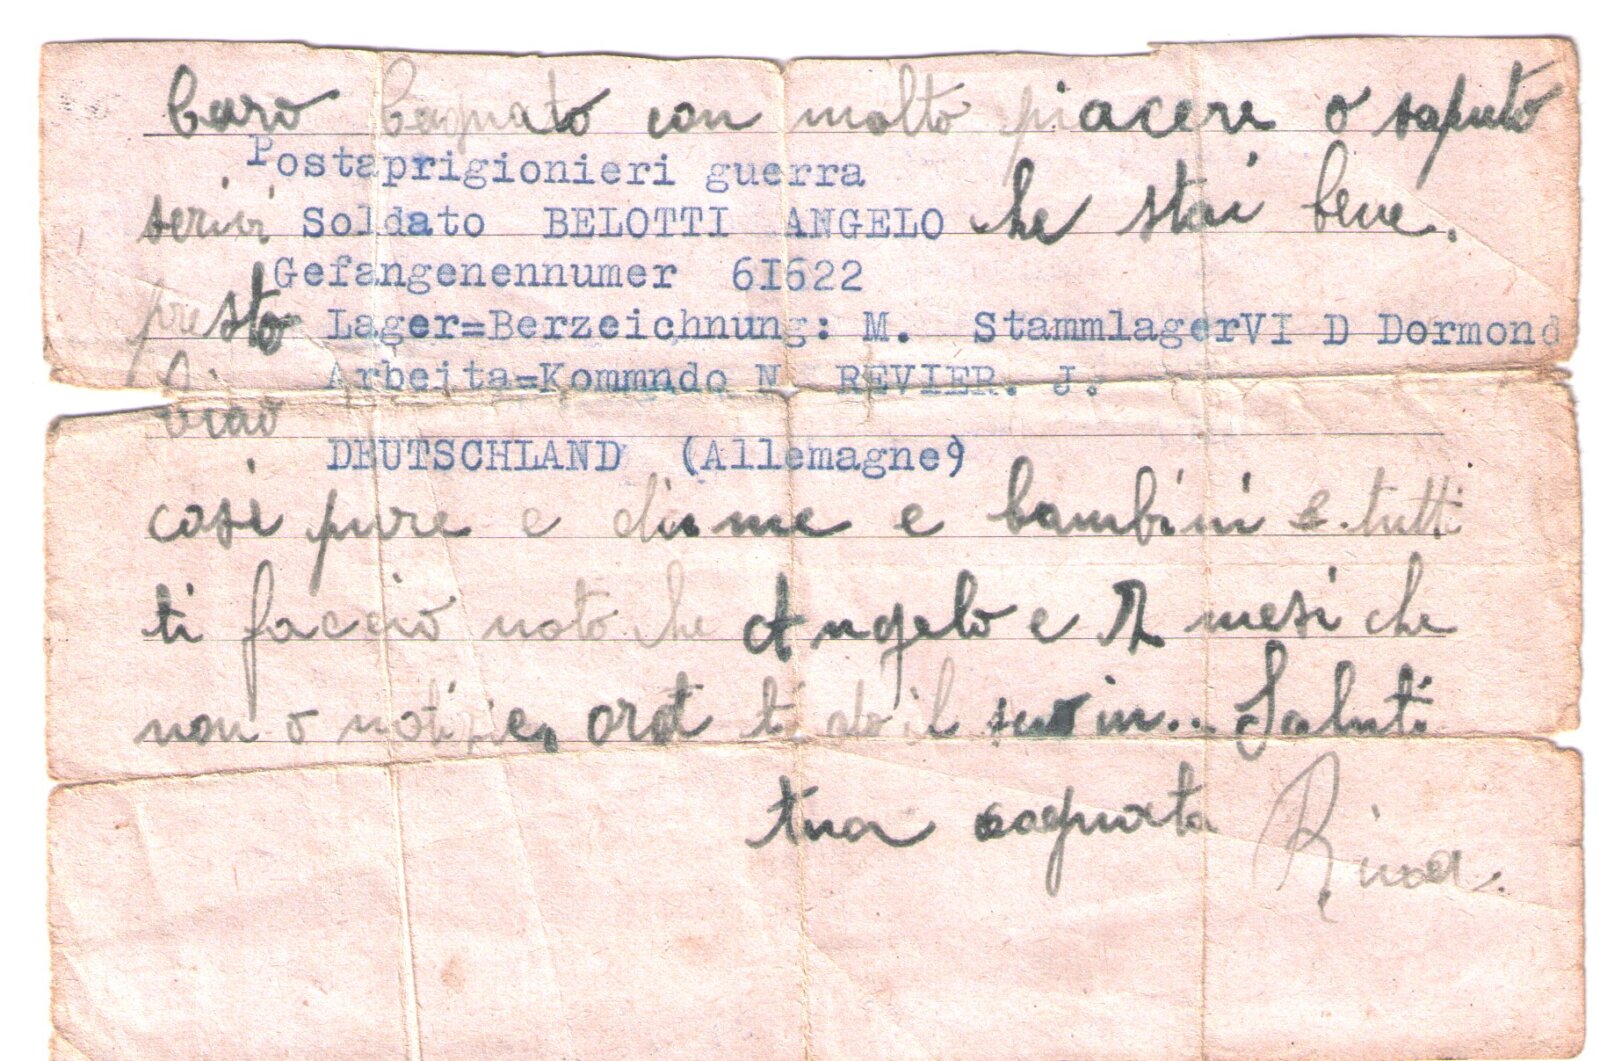 Caro Cognato con molto piacere o saputo
Postaprigionieri guerra
scrivi Soldato BELOTTI ANGELO he stai bene.
Gefangenennumer 6I622
presto Lager=Berzeichnung: M. StammlagerVI D Dormond
Arbeita=Kommndo N REVIER. J.
Ciao
DEUTSCHLAND (Allemagne)
cosi pure e di me e bambini e tutti
ti faccio noto che Angelo e 2 mesi che
non o notizie, ora ti do il suo in... Saluti
tua cognata Rina.